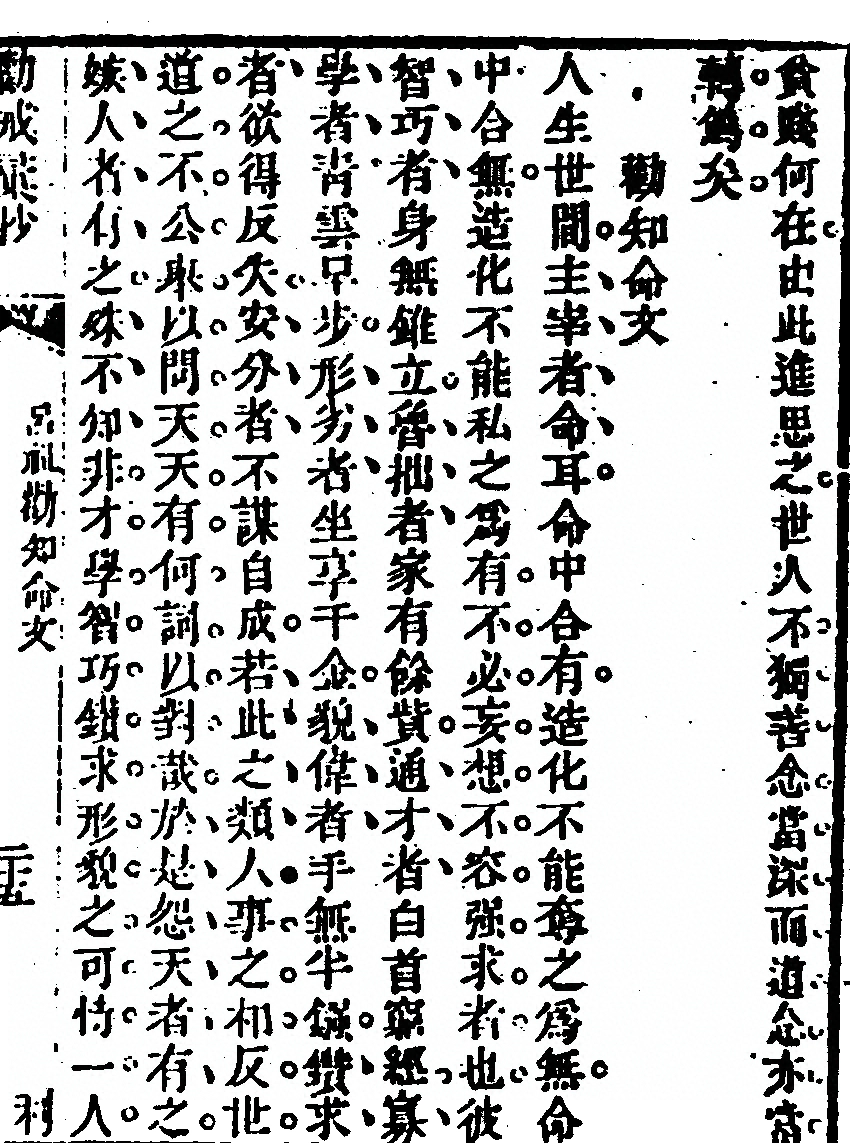 貧賤何在由此進思之世人不獨善念當深而道念亦當
轉爲矣
勸知命文
人生世間主宰者命耳命中合有造化不能奪之爲無命
中合無造化不能私之爲有不必妄想不容强求者也彼
智巧者身無錐立魯拙者家有餘貲通才者白首窮經寡
學者靑雲早步形劣者坐享千金貌偉者手無半鏹鑽求
者欲得反失安分者不謀自成若此之類人事之相反世
道之不公聚以問天天有何詞以對哉於是怨天者有之
嫉人者有之殊不知非才學智巧鑽求形貌之可恃一人
勸戒 抄
呂祖勸知命文
二五
利